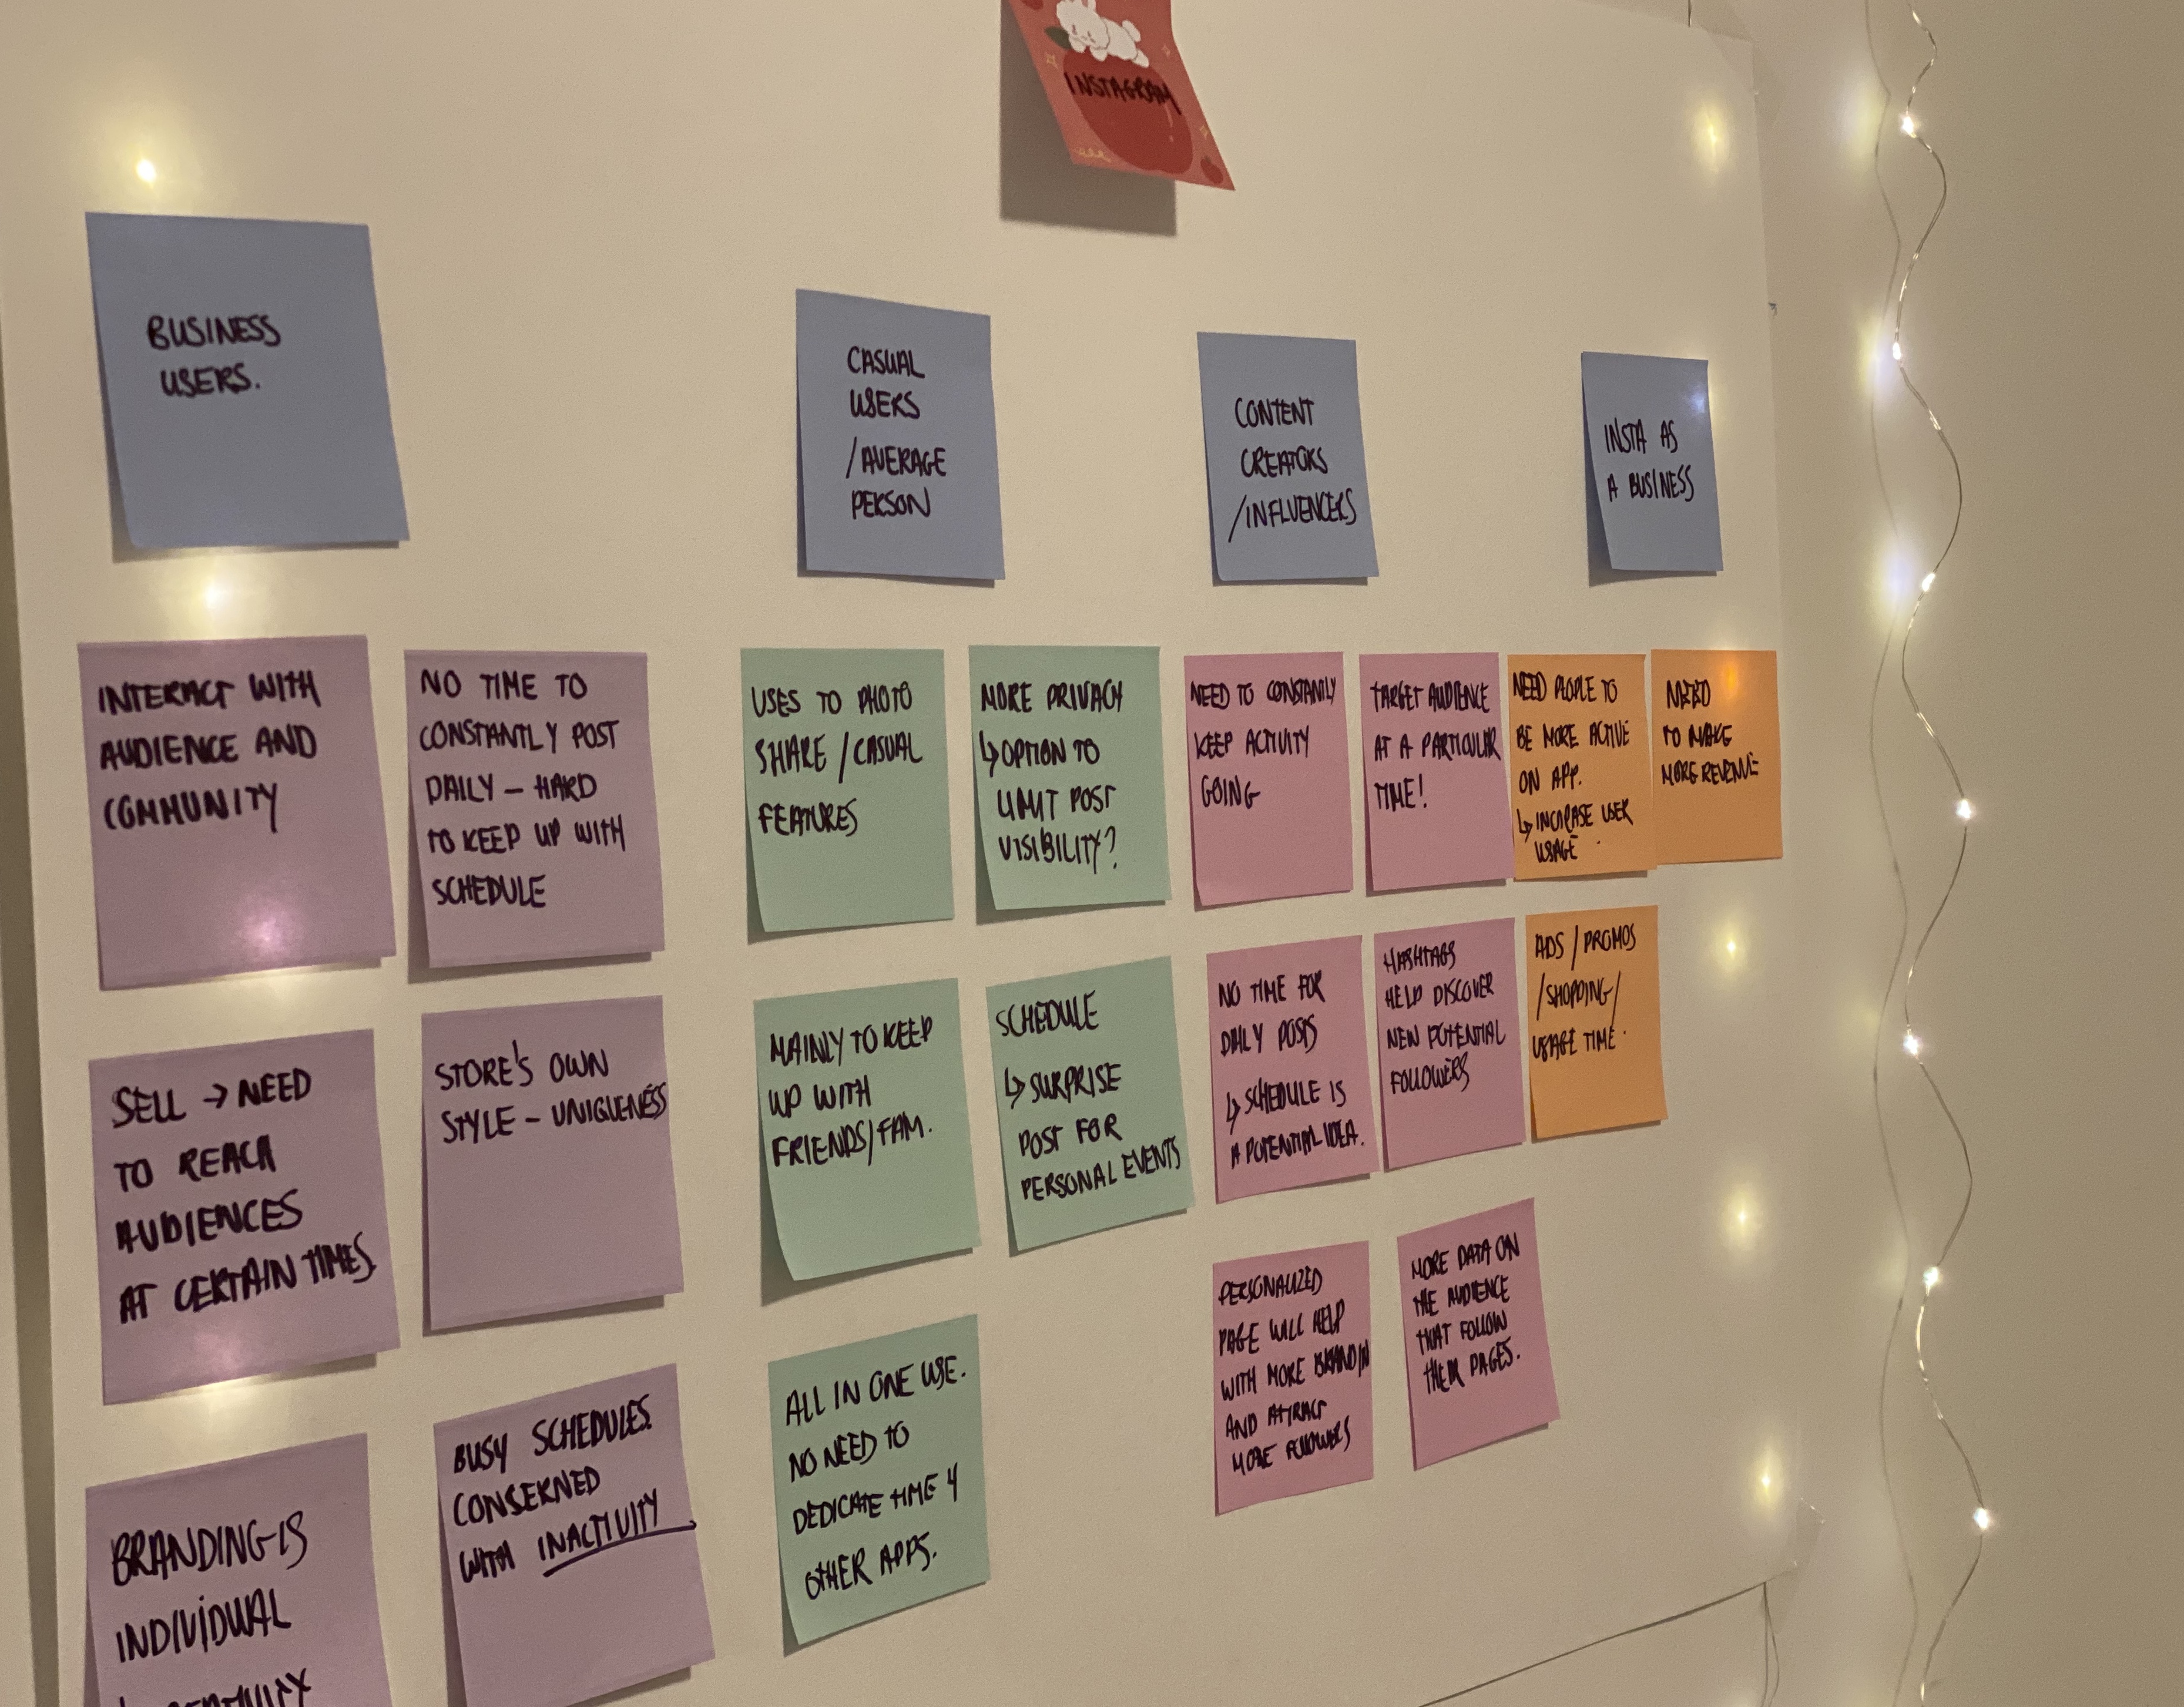 INSTAGRAM
BUSINESS
USERS.
CASUAL
USERS
/AVERAGE
PERSON
CONTENT
CREATORS
/INFLUENCERS
INSTA AS
A BUSINESS
INTERACT WITH
AUDIENCE AND
COMMUNITY
NO TIME TO
CONSTANTLY POST
DAILY – HARD
TO KEEP UP WITH
SCHEDULE
SELL → NEED
TO REACH
AUDIENCES
AT CERTAIN TIMES.
STORE'S OWN
STYLE – UNIQUENESS
BRANDING IS
INDIVIDUAL
BUSY SCHEDULES.
CONSERNED
WITH INACTIVITY
USES TO PHOTO
SHARE / CASUAL
FEATURES
MORE PRIVACY
↳ OPTION TO
LIMIT POST
VISIBILITY?
MAINLY TO KEEP
UP WITH
FRIENDS/FAM.
SCHEDULE
↳ SURPRISE
POST FOR
PERSONAL EVENTS
ALL IN ONE USE.
NO NEED TO
DEDICATE TIME 4
OTHER APPS.
NEED TO CONSTANTLY
KEEP ACTIVITY
GOING
TARGET AUDIENCE
AT A PARTICULAR
TIME!
NO TIME FOR
DAILY POSTS
↳ SCHEDULE IS
A POTENTIAL IDEA.
HASHTAGS
HELP DISCOVER
NEW POTENTIAL
FOLLOWERS
PERSONALIZED
PAGE WILL HELP
WITH MORE BRANDIN
AND ATTRACT
MORE FOLLOWERS
MORE DATA ON
THE AUDIENCE
THAT FOLLOW
THEIR PAGES.
NEED PEOPLE TO
BE MORE ACTIVE
ON APP.
↳ INCREASE USER
USAGE.
NEED
TO MAKE
MORE REVENUE
ADS / PROMOS
/SHOPPING/
USAGE TIME.